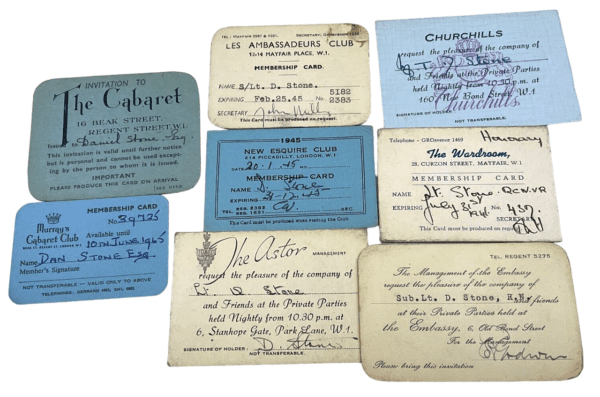 INVITATION TO
The Cabaret
16 BEAK STREET,
REGENT STREET W.1.
Issued to Daniel Stone Esq
This invitation is valid until further notice
but is personal and cannot be used except-
ing by the person to whom it is issued.
IMPORTANT
PLEASE PRODUCE THIS CARD ON ARRIVAL
LES AMBASSADEURS CLUB
MAYFAIR PLACE, W.1.
MEMBERSHIP CARD.
NAME S/Lt. D. Stone.
EXPIRING Feb.25.45 No 5182
2383
SECRETARY John Mills
This Card must be produced on request.
CHURCHILLS
request the pleasure of the company of
Stone
and Friends at the Private Parties
held Nightly from 10.30 p.m. at
160 New Bond Street, W.1
Churchills
1945
NEW ESQUIRE CLUB
PICCADILLY, LONDON, W.1
DATE 20-1-45
MEMBERSHIP CARD
D. Stone
EXPIRING 31-12-45
This Card must be produced when visiting the Club
Telephone - GROsvenor 1469 Honorary
The Wardroom,
CURZON STREET, MAYFAIR, W.1
MEMBERSHIP CARD
NAME Lt. Stone R.C.N.V.R
EXPIRING July 31st No. 437.
SECRETARY
This Card must be produced on request
Murray's
Cabaret Club
MEMBERSHIP CARD
No. 39725
Available until
10TH JUNE 1965
Name DAN STONE ESQ.
Member's Signature
NOT TRANSFERABLE - VALID ONLY TO ABOVE
The Astor
MANAGEMENT
request the pleasure of the company of
Lt. D. Stone
and Friends at the Private Parties
held Nightly from 10.30 p.m. at
6, Stanhope Gate, Park Lane, W.1
SIGNATURE OF HOLDER: D. Stone
NOT TRANSFERABLE.
TEL. REGENT 5275
The Management of the Embassy
request the pleasure of the company of
Sub.Lt. D. Stone, R.N. friends
at their Private Parties held at
the Embassy, 6, Old Bond Street
For the Management
Please bring this invitation